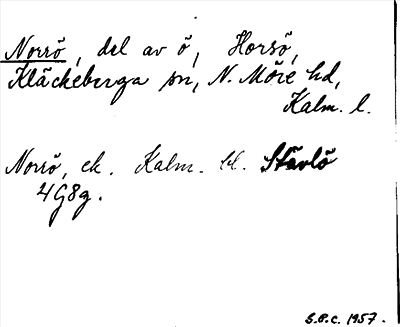 Norrö, del av ö, Horsö,
Kläckeberga sn, N. Möre hd,
Kalm. l.
Norrö, ek. Kalm. bl. Stävlö
4G8g.
S.P.C. 1957.